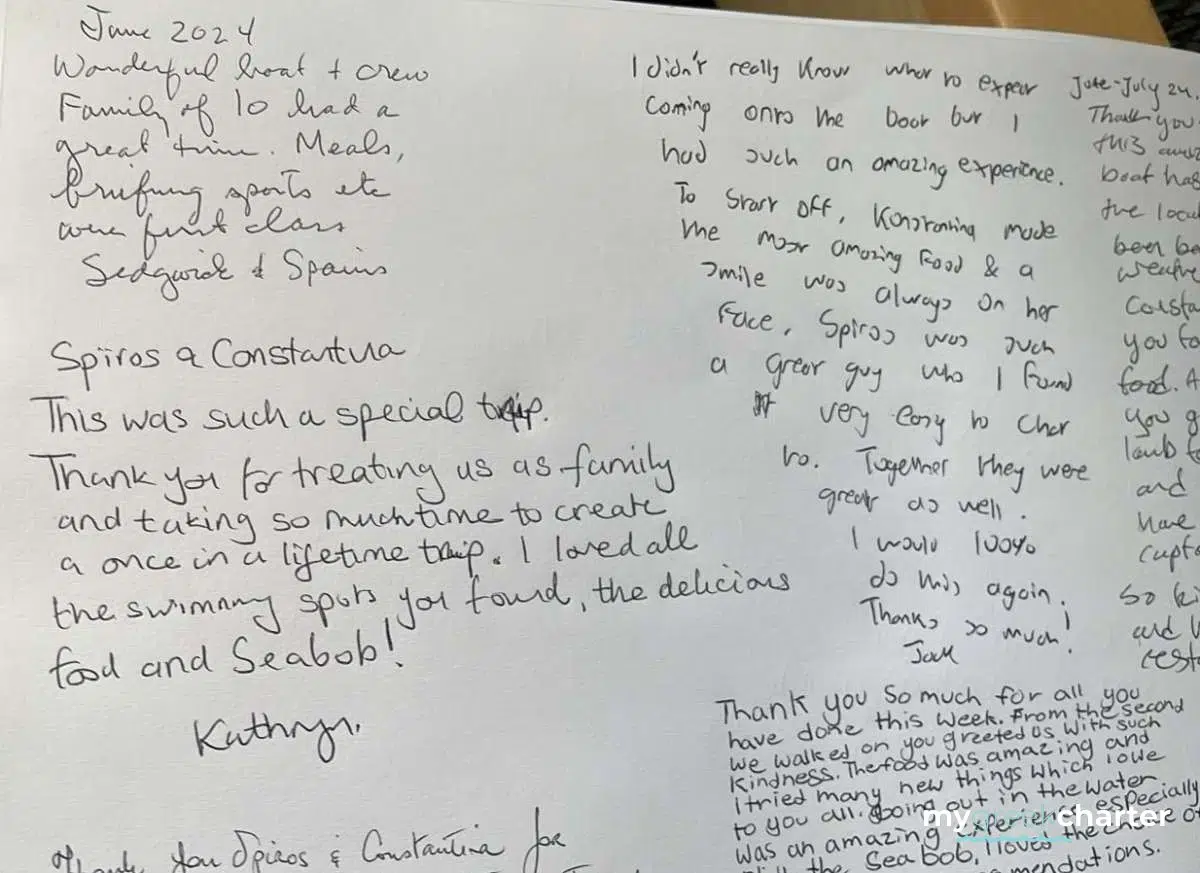 June 2024
Wonderful boat + crew
Family of 10 had a
great time. Meals,
briefing sports etc
were first class
Sedgwick & Spains
Spiros & Constantina
This was such a special trip.
Thank you for treating us as family
and taking so much time to create
a once in a lifetime trip. I loved all
the swimming spots you found, the delicious
food and Seabob!
Kathryn.
Thank you Spiros & Constantina for
I didn't really know what to expect
coming onto the boat but I
had such an amazing experience.
To start off, Konstantina made
the most amazing food & a
smile was always on her
face. Spiros was such
a great guy who I found
very easy to chat
to. Together they were
great as well.
I would 100%
do this again.
Thanks so much!
Jack
June-July 24.
Thank you
this
boat has
the
been
Consta
you fo
food. A
you g
and
have
capta
so ki
and
Thank you so much for all you
have done this week. From the second
we walked on you greeted us with such
kindness. The food was amazing and
I tried many new things which I owe
to you all. Going out in the water
was an amazing experience especially
the Sea bob, I loved the of
mendations.
my charter